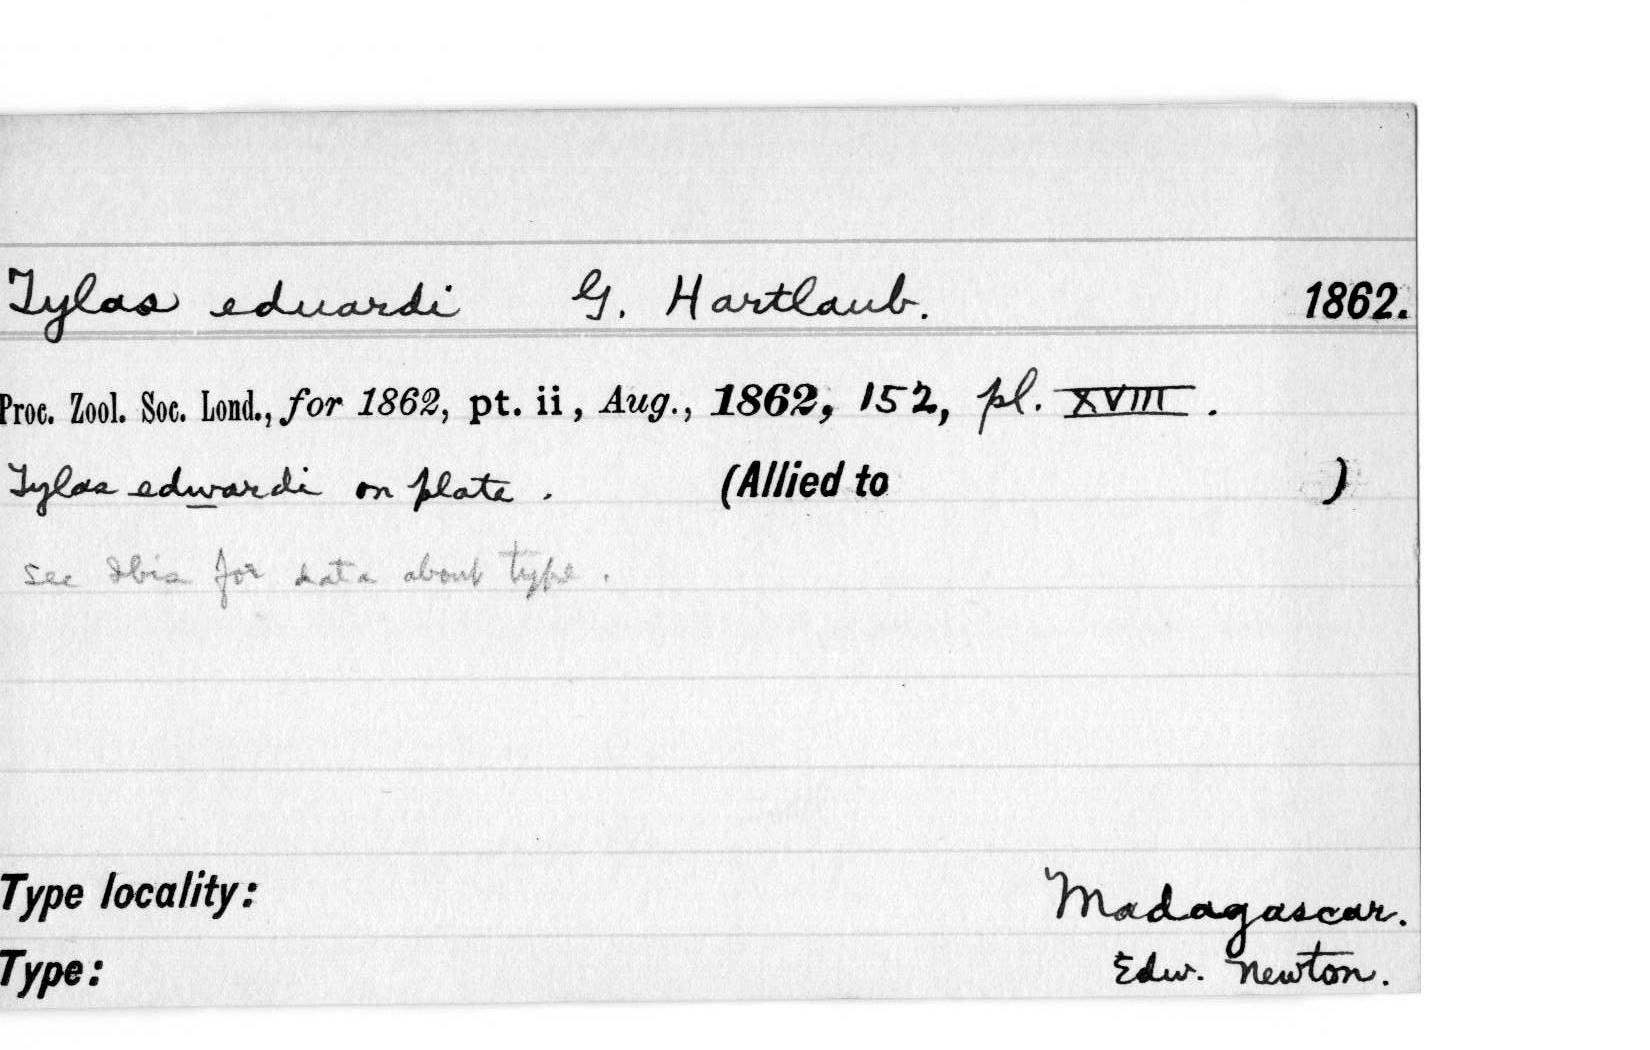 Tylas eduardi G. Hartlaub. 1862.
Proc. Zool. Soc. Lond., for 1862, pt. ii, Aug., 1862, 152, pl. XVIII.
Tylas edwardi on plate. (Allied to )
See Ibis for data about type.
Type locality: Madagascar.
Type: Edw. Newton.